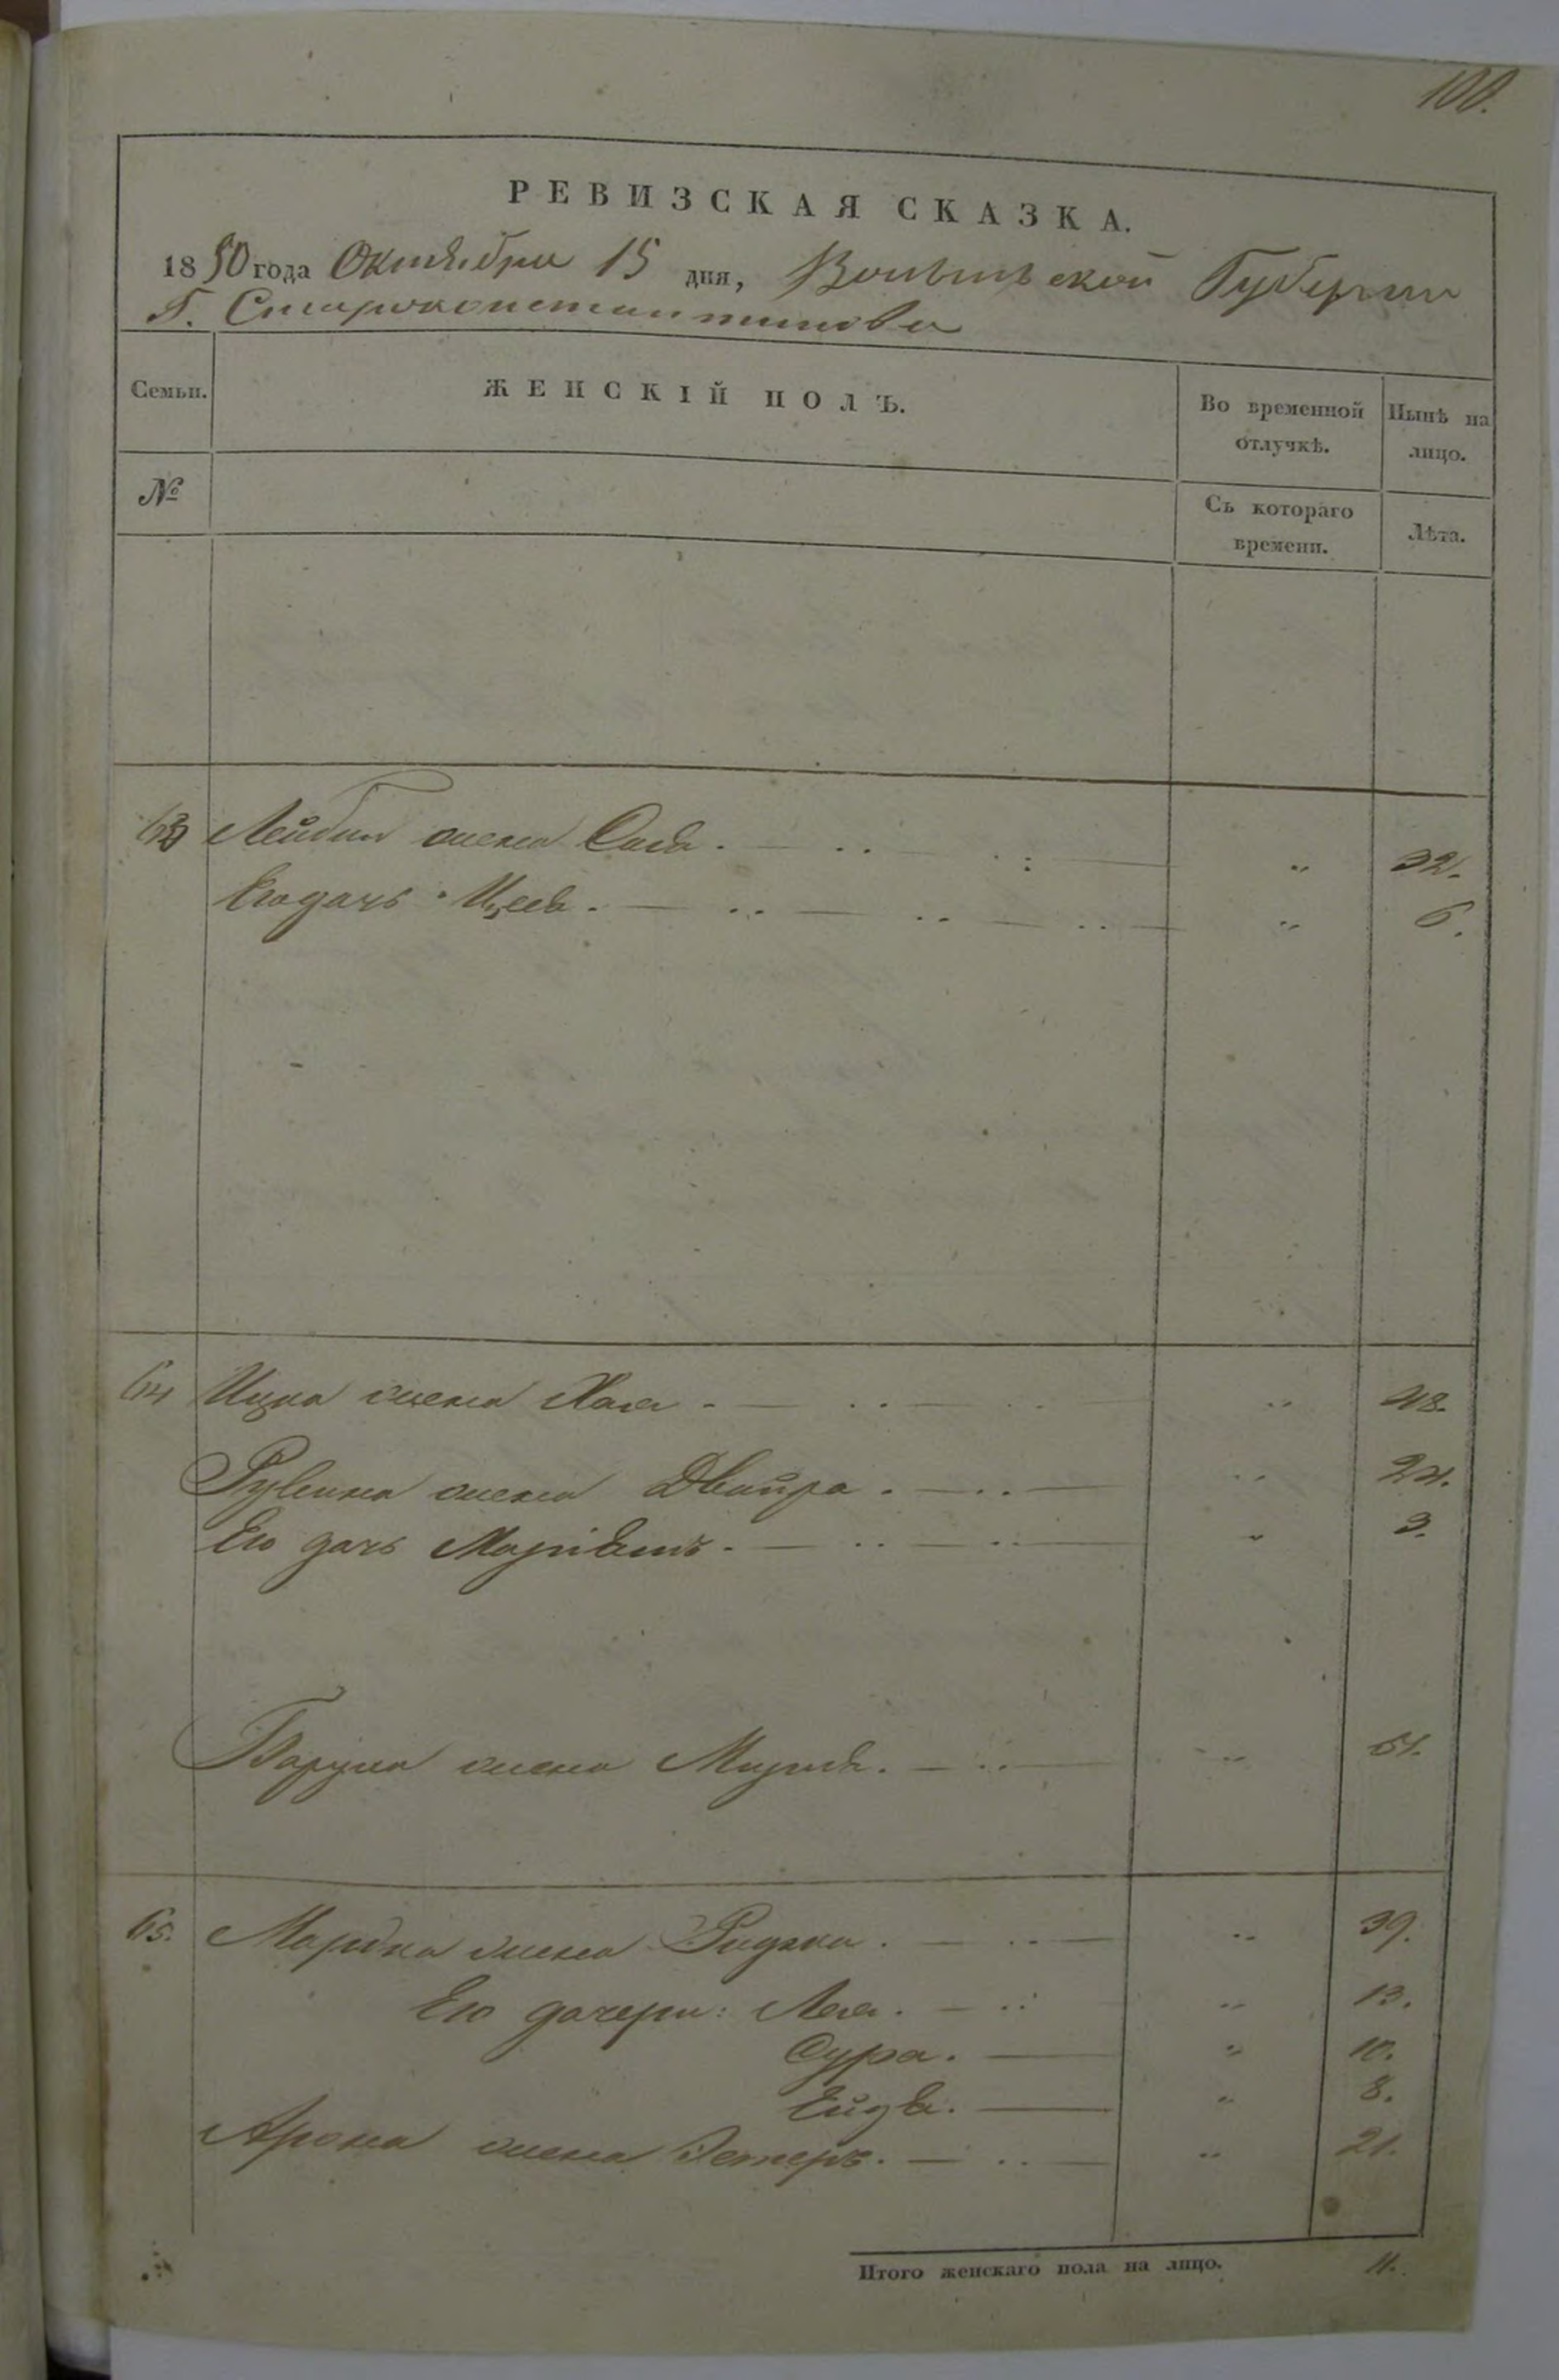 100.
РЕВИЗСКАЯ СКАЗКА.
1850 года Октября 15 дня, Волынской Губернии
Г. Староконстантинова
Семьи. ЖЕНСКІЙ ПОЛЪ. Во временной отлучкѣ. Нынѣ на лицо.
№ Съ котораго времени. Лѣта.
63 Лейбы жена Сося. „ 32.
Его дочь „ 6.
64 Ицка жена Хая „ 48.
Рувина жена Двойра. „ 24.
Его дочь „ 3.
Баруха жена „ 51.
65. жена „ 39.
Его дочери: Лея. „ 13.
Сура. „ 10.
„ 8.
Арона жена Эстеръ. „ 21.
Итого женскаго пола на лицо. 11.